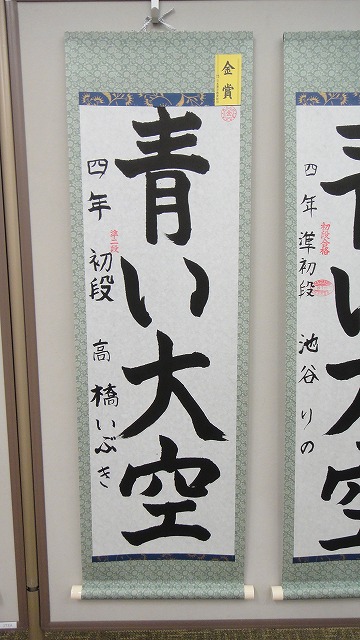 金賞
青い大空
四年 初段 高橋いぶき
準二段
青い大空
四年 準初段 池谷りの
初段合格